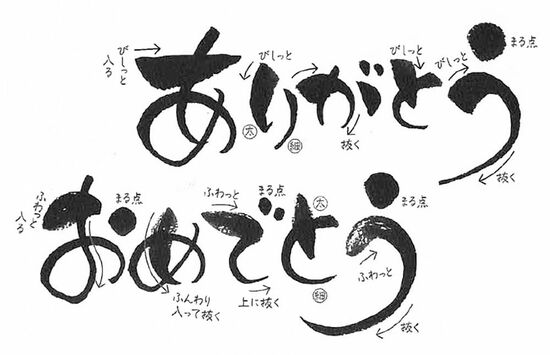 ありがとう
びしっと入る
びしっと
びしっと
びしっと
まる点
太
細
抜く
抜く
おめでとう
ふわっと入る
まる点
ふわっと
まる点
太
まる点
ふんわり入って抜く
上に抜く
細
ふわっと
抜く